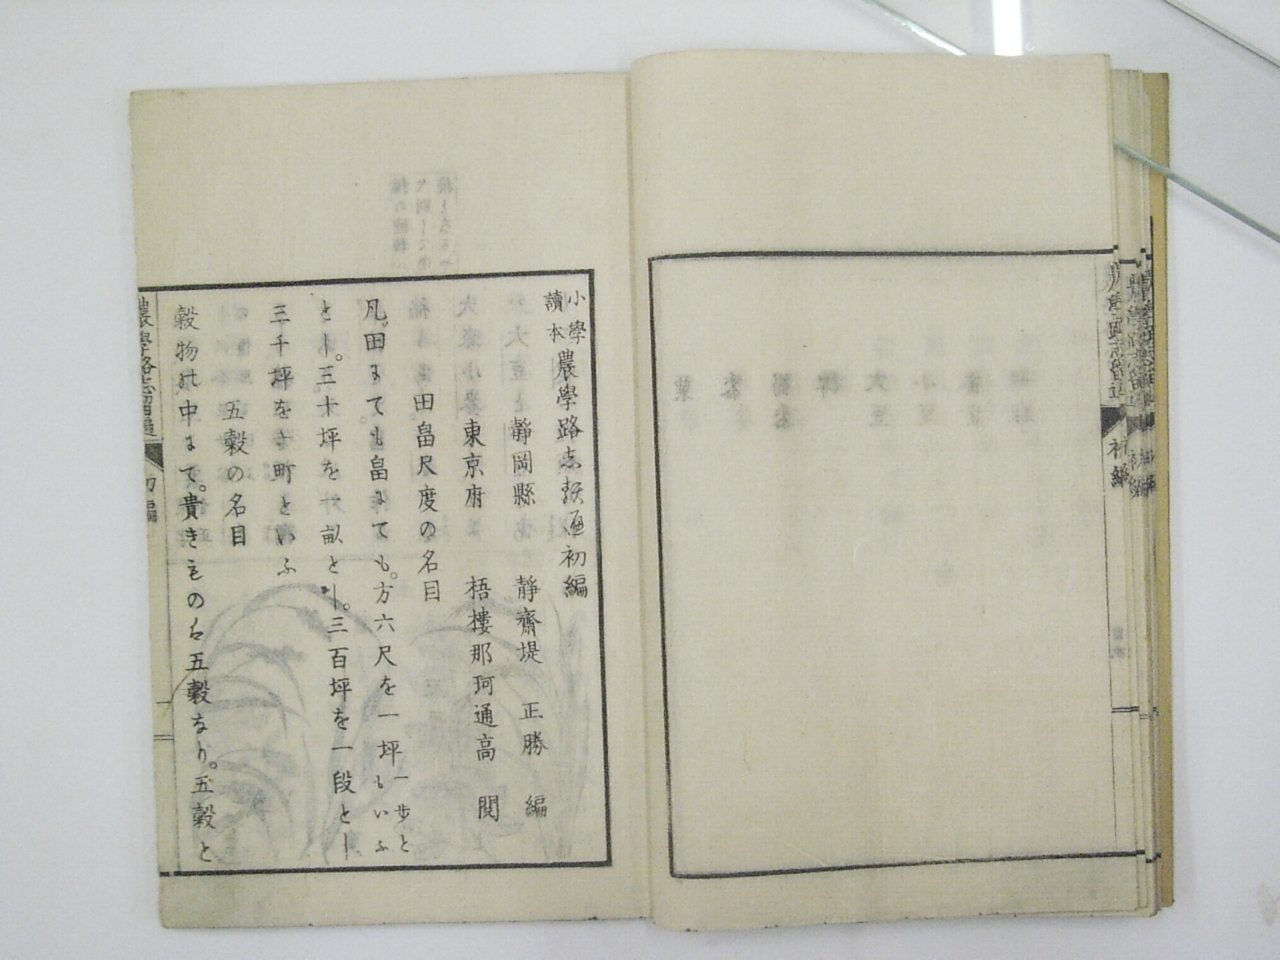 小學讀本農學路志留遍初編
靜岡縣　靜齋堤　正勝　編
東京府　梧樓那珂通高　閲
田畠尺度の名目
凡。田にても畠にても。方六尺を一坪一步ともいふ
とし。三十坪を一畝とし。三百坪を一段とし
三千坪を一町といふ
五穀の名目
穀物の中にて。貴きものは五穀なり。五穀と
農學路志留遍
初編
補編